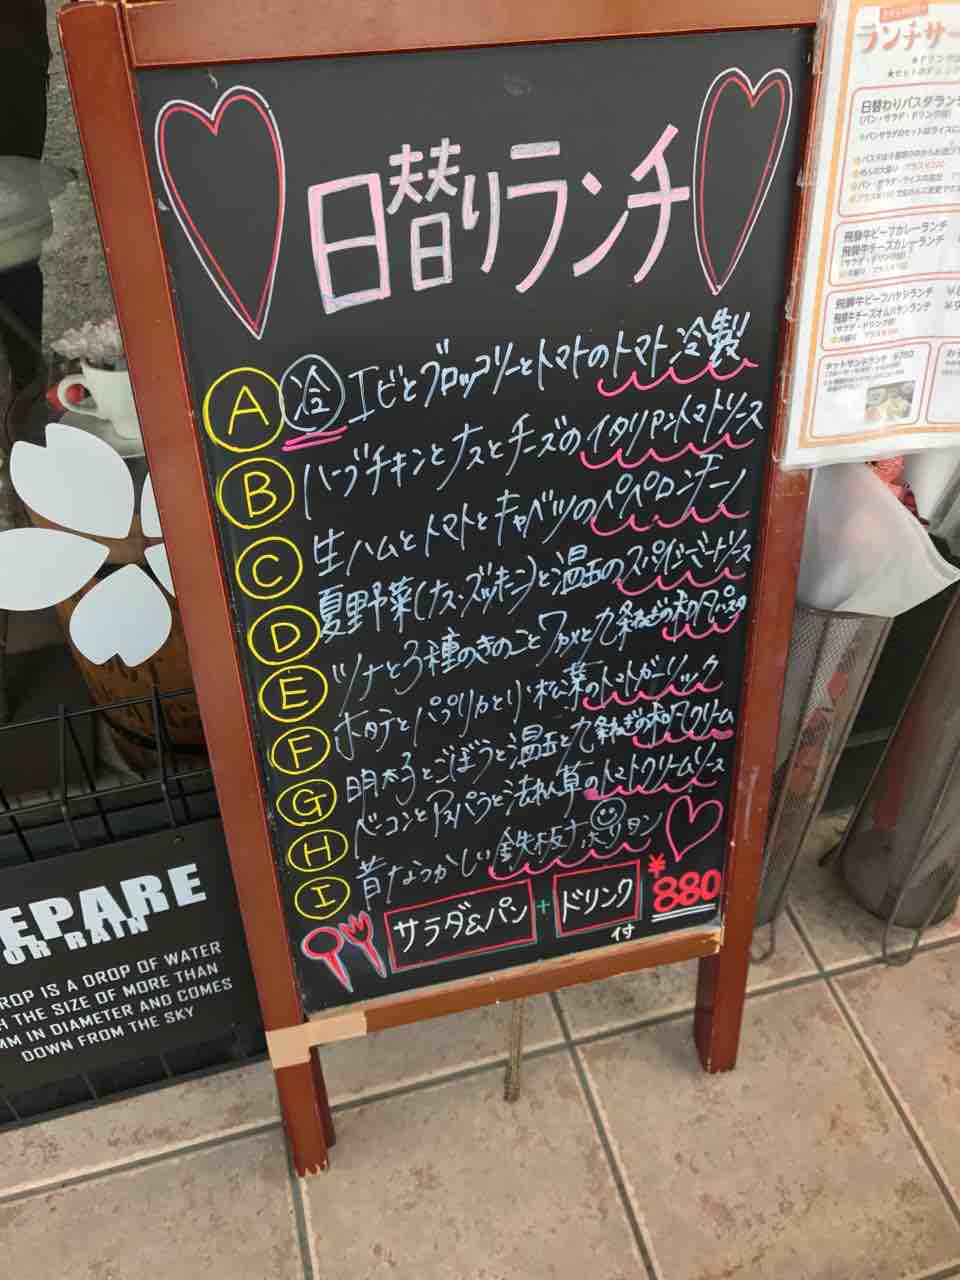 日替りランチ
A 冷 エビとブロッコリーとトマトのトマト冷製
B ハーブチキンとナスとチーズのイタリアントマトソース
C 生ハムとトマトとキャベツのペペロンチーノ
D 夏野菜(ナス・ズッキーニ)と温玉のスパイシーミートソース
E ツナと3種のきのことワカメと九条ねぎの和風パスタ
F ホタテとパプリカと小松菜のトマトガーリック
G 明太子とごぼうと温玉と九条ねぎの和風クリーム
H ベーコンとアスパラと法れん草のトマトクリームソース
I 昔なつかしい鉄板ナポリタン
サラダ&パン + ドリンク 付 ¥880
ランチサー
日替わりパスタラン
(パン・サラダ・ドリンク付)
飛騨牛ビーフカレーランチ
飛騨牛チーズカレーランチ
(サラダ・ドリンク付)
飛騨牛ビーフハヤシランチ
飛騨牛チーズオムハヤシランチ
(サラダ・ドリンク付)
ホットサンドランチ ¥780
EPARE
OR RAIN
ROP IS A DROP OF WATER
H THE SIZE OF MORE THAN
MM IN DIAMETER AND COMES
DOWN FROM THE SKY